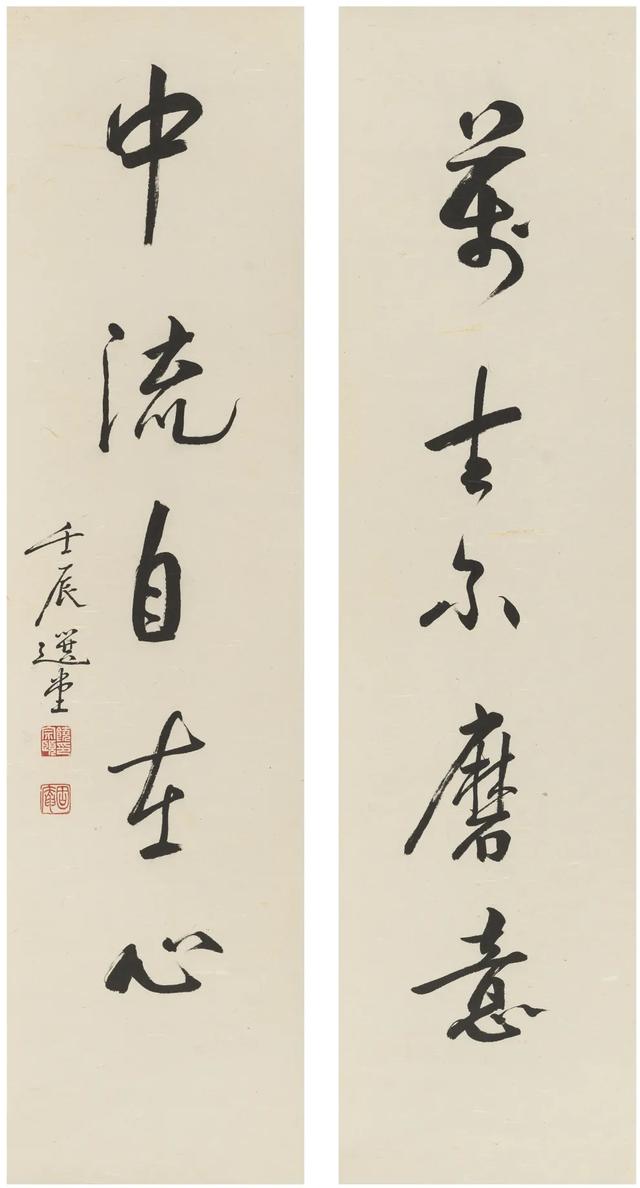 萬古不磨意
中流自在心
壬辰選堂